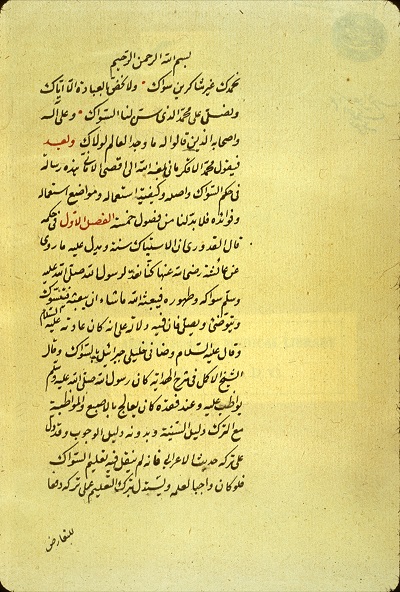 بسم الله الرحمن الرحيم
نحمدك غير شاكرين سواك ولا نخص بالعبادة الا اياك
ونصلى على محمد الذى سن لنا السواك وعلى آله
واصحابه الذين قالوا له ما وجد العالم لولاك وبعد
فيقول محمد الاقكرمانى بلغه الله الى اقصى الامانى هذه رسالة
فى حكم السواك واصله وكيفية استعماله ومواضع استعماله
وفوائده فلا بد لنا من فصول خمسة الفصل الاول فى حكمه
قال القدورى ان الاستياك سنة ويدل عليه ما روى
عن عائشة رضى الله عنها كنا نعد لرسول الله صلى الله عليه
وسلم سواكه وطهوره فيبعثه الله ما شاء ان يبعثه فيتسوك
ويتوضئ ويصلى فان فيه دلالة على انه كان عادته عليه السلام
وقال عليه السلام وصانى خليلى جبرائيل بالسواك وقال
الشيخ الاكمل فى شرح الهداية كان رسول الله صلى الله عليه وسلم
يواظب عليه وعند فقده كان يعالج بالاصبع والمواظبة
مع الترك دليل السنية وبدونه دليل الوجوب وقد دل
على تركه حديث الاعرابى فانه لم ينقل فيه تعليم السواك
فلو كان واجبا لعلمه ويستدل بترك التعليم على تركه دفعا
للتعارض